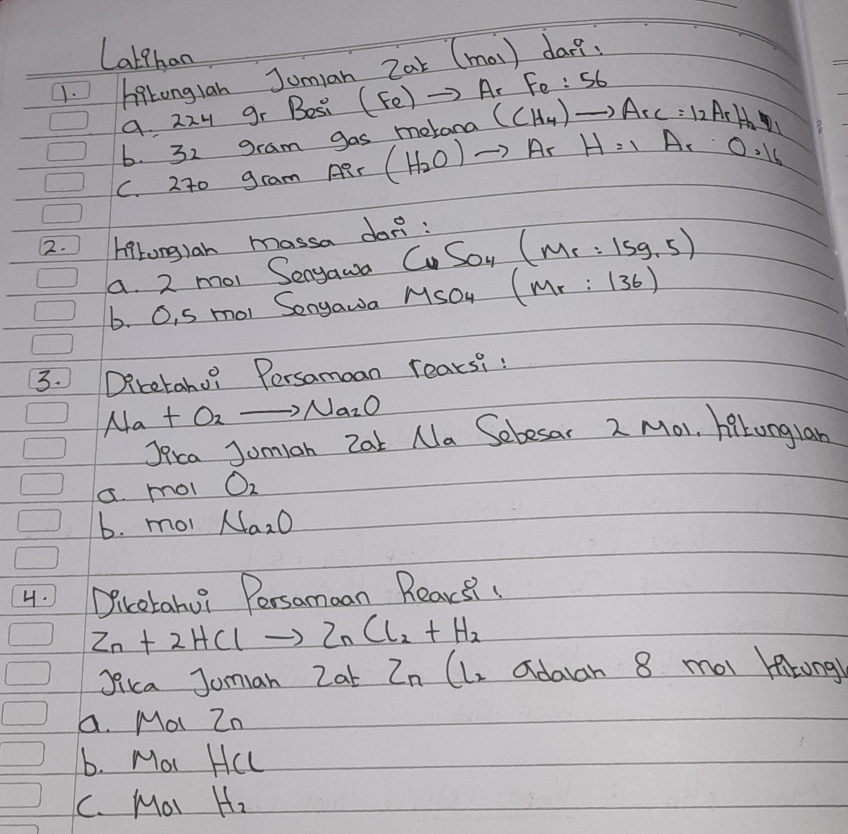 Latihan
1. Hitunglah Jumlah Zat (mol) dari:
a. 224 gr Besi (Fe) → Ar Fe : 56
b. 32 gram gas metana (CH4) → Ar C = 12 Ar H
c. 270 gram Air (H2O) → Ar H = 1 Ar O = 16
2. Hitunglah massa dari :
a. 2 mol Senyawa CuSO4 (Mr : 159,5)
b. 0,5 mol Senyawa MSO4 (Mr : 136)
3. Diketahui Persamaan reaksi :
Na + O2 → Na2O
Jika Jumlah Zat Na Sebesar 2 Mol. hitunglah
a. mol O2
b. mol Na2O
4. Diketahui Persamaan Reaksi :
Zn + 2HCl → ZnCl2 + H2
Jika Jumlah Zat ZnCl2 adalah 8 mol Hitungl
a. Mol Zn
b. Mol HCl
c. Mol H2